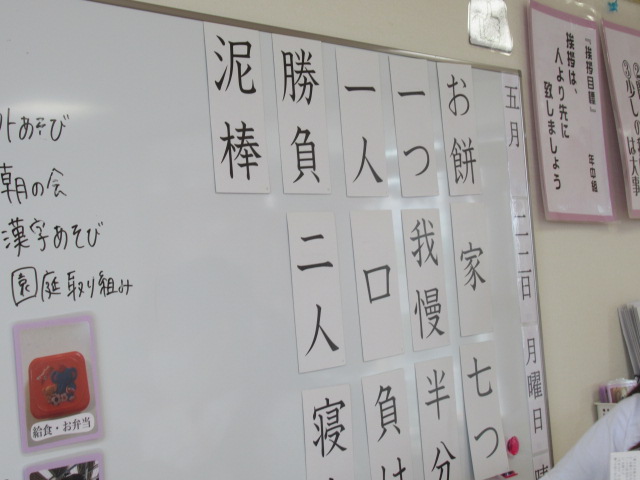 『挨拶目標』 年中組
挨拶は、
人より先に
致しましょう
五月
二二日
月曜日
お餅
家
七つ
一つ
我慢
半分
一人
口
負け
勝負
二人
寝
泥棒
外あそび
朝の会
漢字あそび
園庭取り組み
給食・お弁当